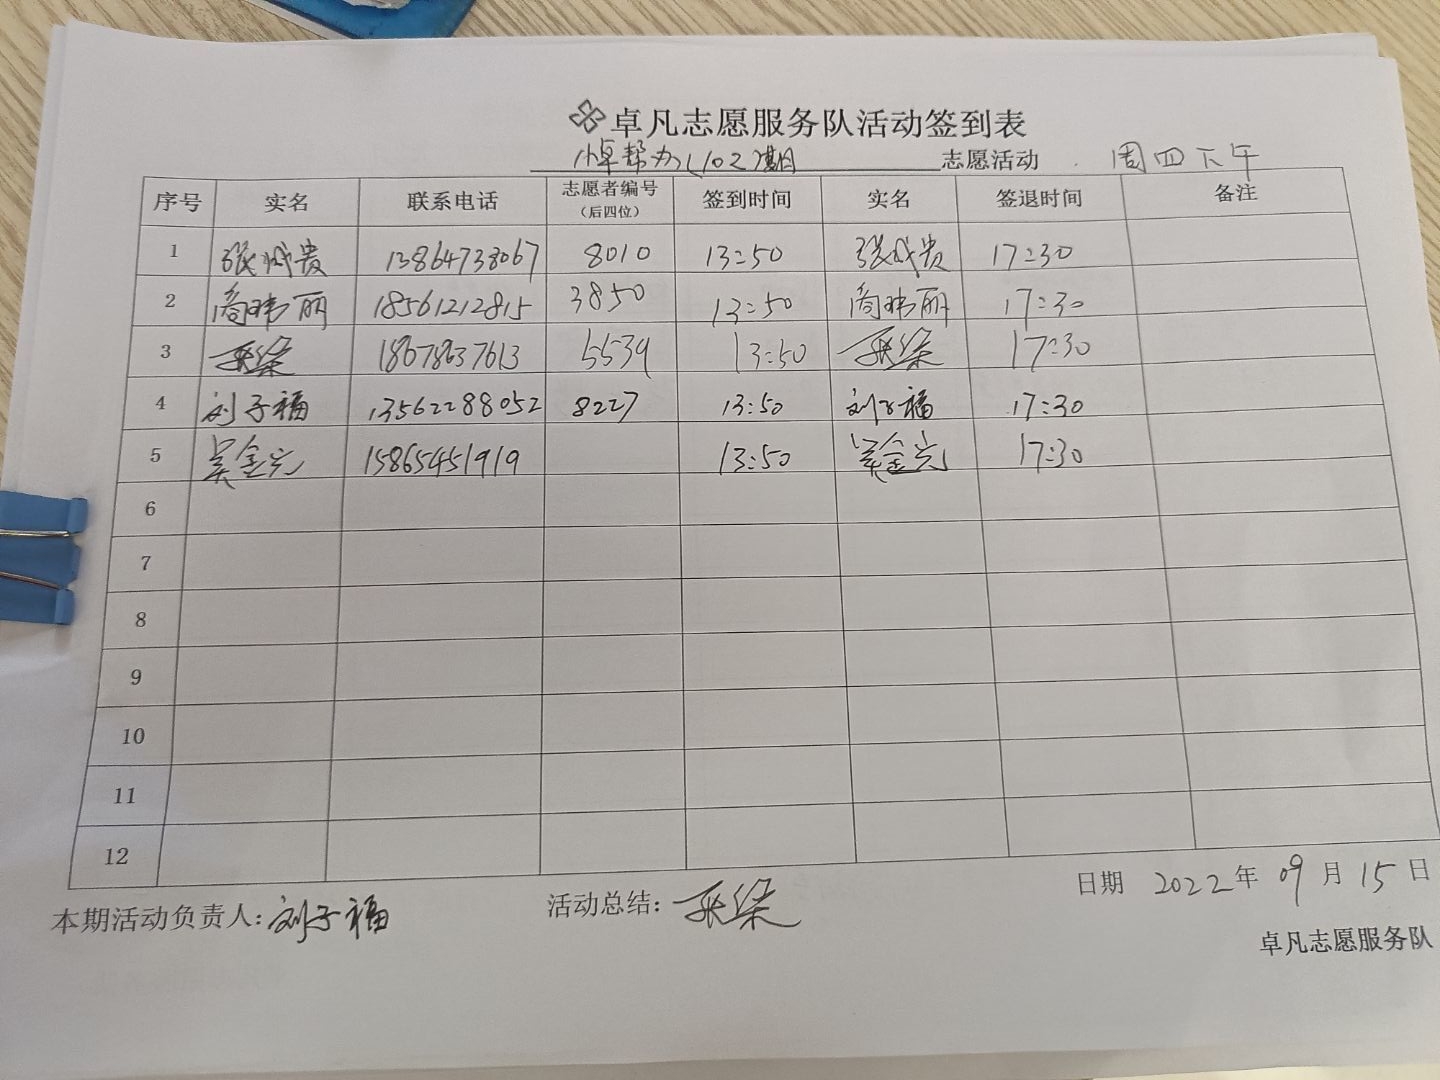 卓凡志愿服务队活动签到表
小卓帮办102期 志愿活动 周四下午
序号 实名 联系电话 志愿者编号（后四位） 签到时间 实名 签退时间 备注
1 张成贵 13864738067 8010 13:50 张成贵 17:30
2 18561212815 3850 13:50 17:30
3 18678637613 5539 13:50 17:30
4 刘子福 13562288052 8227 13:50 刘子福 17:30
5 吴金亮 15865451919 13:50 吴金亮 17:30
6
7
8
9
10
11
12
本期活动负责人：刘子福 活动总结： 日期 2022年09月15日
卓凡志愿服务队